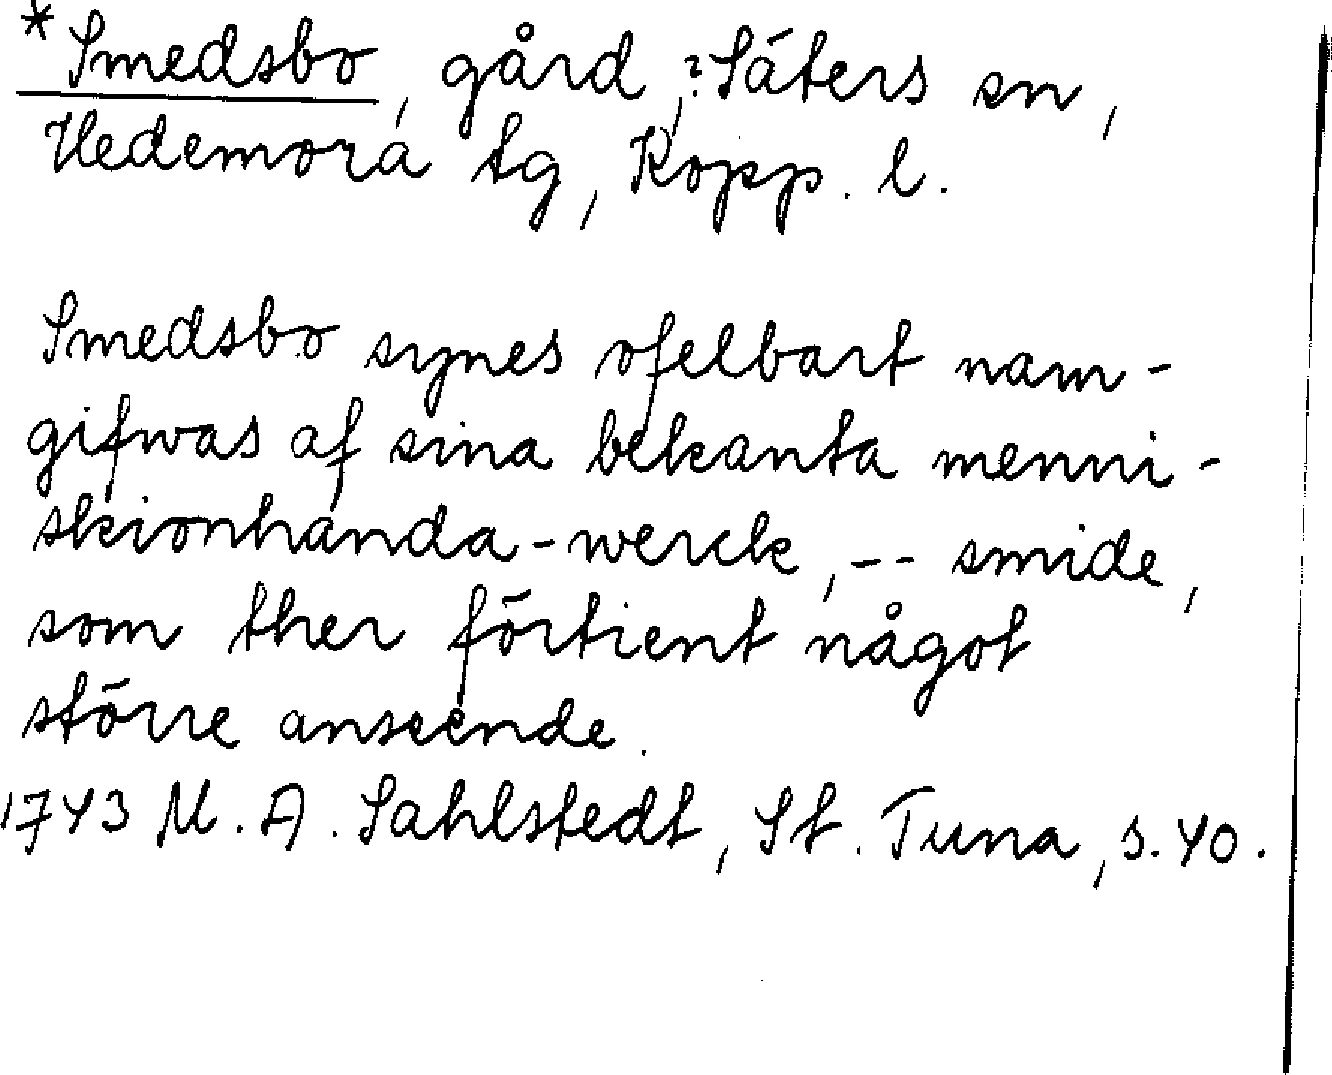 *Smedsbo, gård, ?Säters sn,
Hedemora tg, Kopp. l.
Smedsbo synes ofelbart nam-
gifwas af sina bekanta menni-
skionhanda-werck, -- smide,
som ther förtient något
större anseende.
1743 M. A. Sahlstedt, St. Tuna, s. 40.